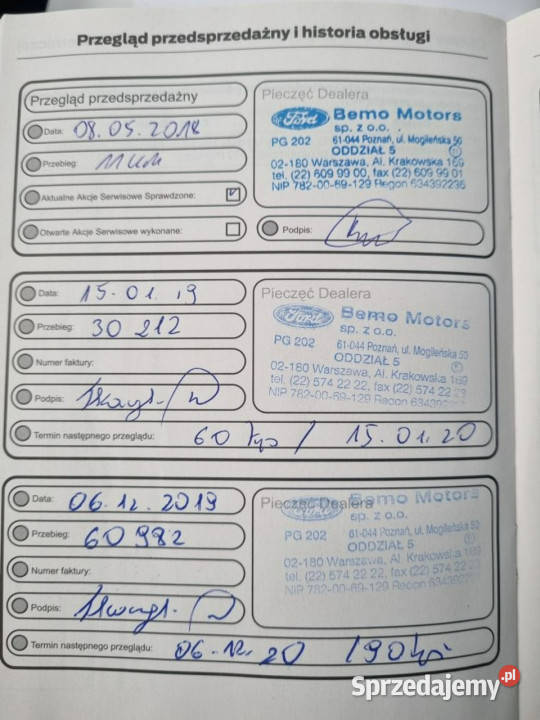 Przegląd przedsprzedażny i historia obsługi
Przegląd przedsprzedażny
Data: 08.05.2018
Przebieg: 11 km
Aktualne Akcje Serwisowe Sprawdzone:
Otwarte Akcje Serwisowe wykonane:
Pieczęć Dealera
Ford Bemo Motors
sp. z o.o.
PG 202 61-044 Poznań, ul. Mogileńska 50
ODDZIAŁ 5
02-180 Warszawa, Al. Krakowska 169
tel. (22) 609 99 00, fax (22) 609 99 01
NIP 782-00-69-129 Regon 634392236
Podpis:
Data: 15-01.19
Przebieg: 30 212
Numer faktury:
Podpis:
Pieczęć Dealera
Ford Bemo Motors
sp. z o.o.
PG 202 61-044 Poznań, ul. Mogileńska 50
ODDZIAŁ 5
02-180 Warszawa, Al. Krakowska 169
tel. (22) 574 22 22, fax (22) 574 22
NIP 782-00-69-129
Termin następnego przeglądu: 60 tys / 15.01.20
Data: 06.12.2019
Przebieg: 60 982
Numer faktury:
Podpis:
Pieczęć Dealera
Bemo Motors
sp. z o.o.
PG 202 61-044 Poznań, ul. Mogileńska 50
ODDZIAŁ 5
02-180 Warszawa, Al. Krakowska 169
tel. (22) 574 22 22, fax (22) 574 22
NIP 782-00-69-129
Termin następnego przeglądu: 06.12.20 / 90 tys
Sprzedajemy.pl